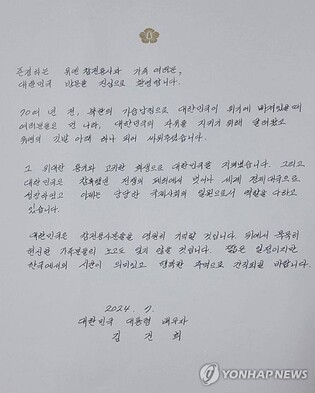 존경하는 유엔 참전용사와 가족 여러분,
대한민국 방문을 진심으로 환영합니다.
70여 년 전, 북한의 기습남침으로 대한민국이 위기에 빠졌을 때
여러분들은 먼 나라, 대한민국의 자유를 지키기 위해 달려왔고
유엔의 깃발 아래 하나 되어 싸워주셨습니다.
그 위대한 용기와 고귀한 희생으로 대한민국을 지켜냈습니다. 그리고
대한민국은 참혹했던 전쟁의 폐허에서 벗어나 세계 경제대국으로,
성장하였고 이제는 당당한 국제사회의 일원으로서 역할을 다하고
있습니다.
대한민국은 참전용사분들을 영원히 기억할 것입니다. 뒤에서 묵묵히
헌신한 가족분들의 노고도 잊지 않을 것입니다. 짧은 일정이지만
한국에서의 시간이 의미있고 행복한 추억으로 간직되길 바랍니다.
2024. 7.
대한민국 대통령 배우자
김 건 희
YONHAP NEWS